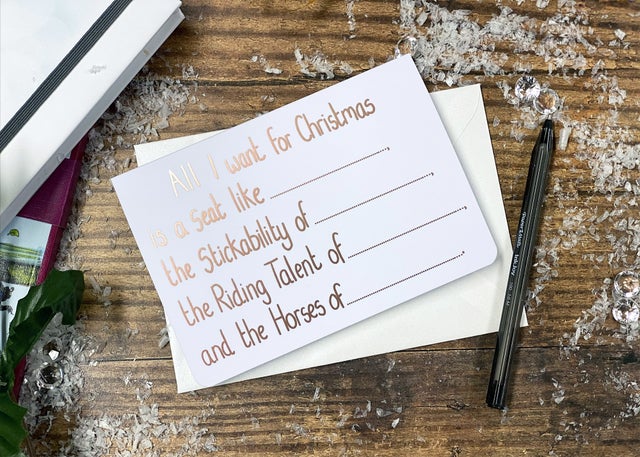 All I want for Christmas
is a seat like ..............................,
the Stickability of ..............................,
the Riding Talent of ..............................,
and the Horses of ..............................